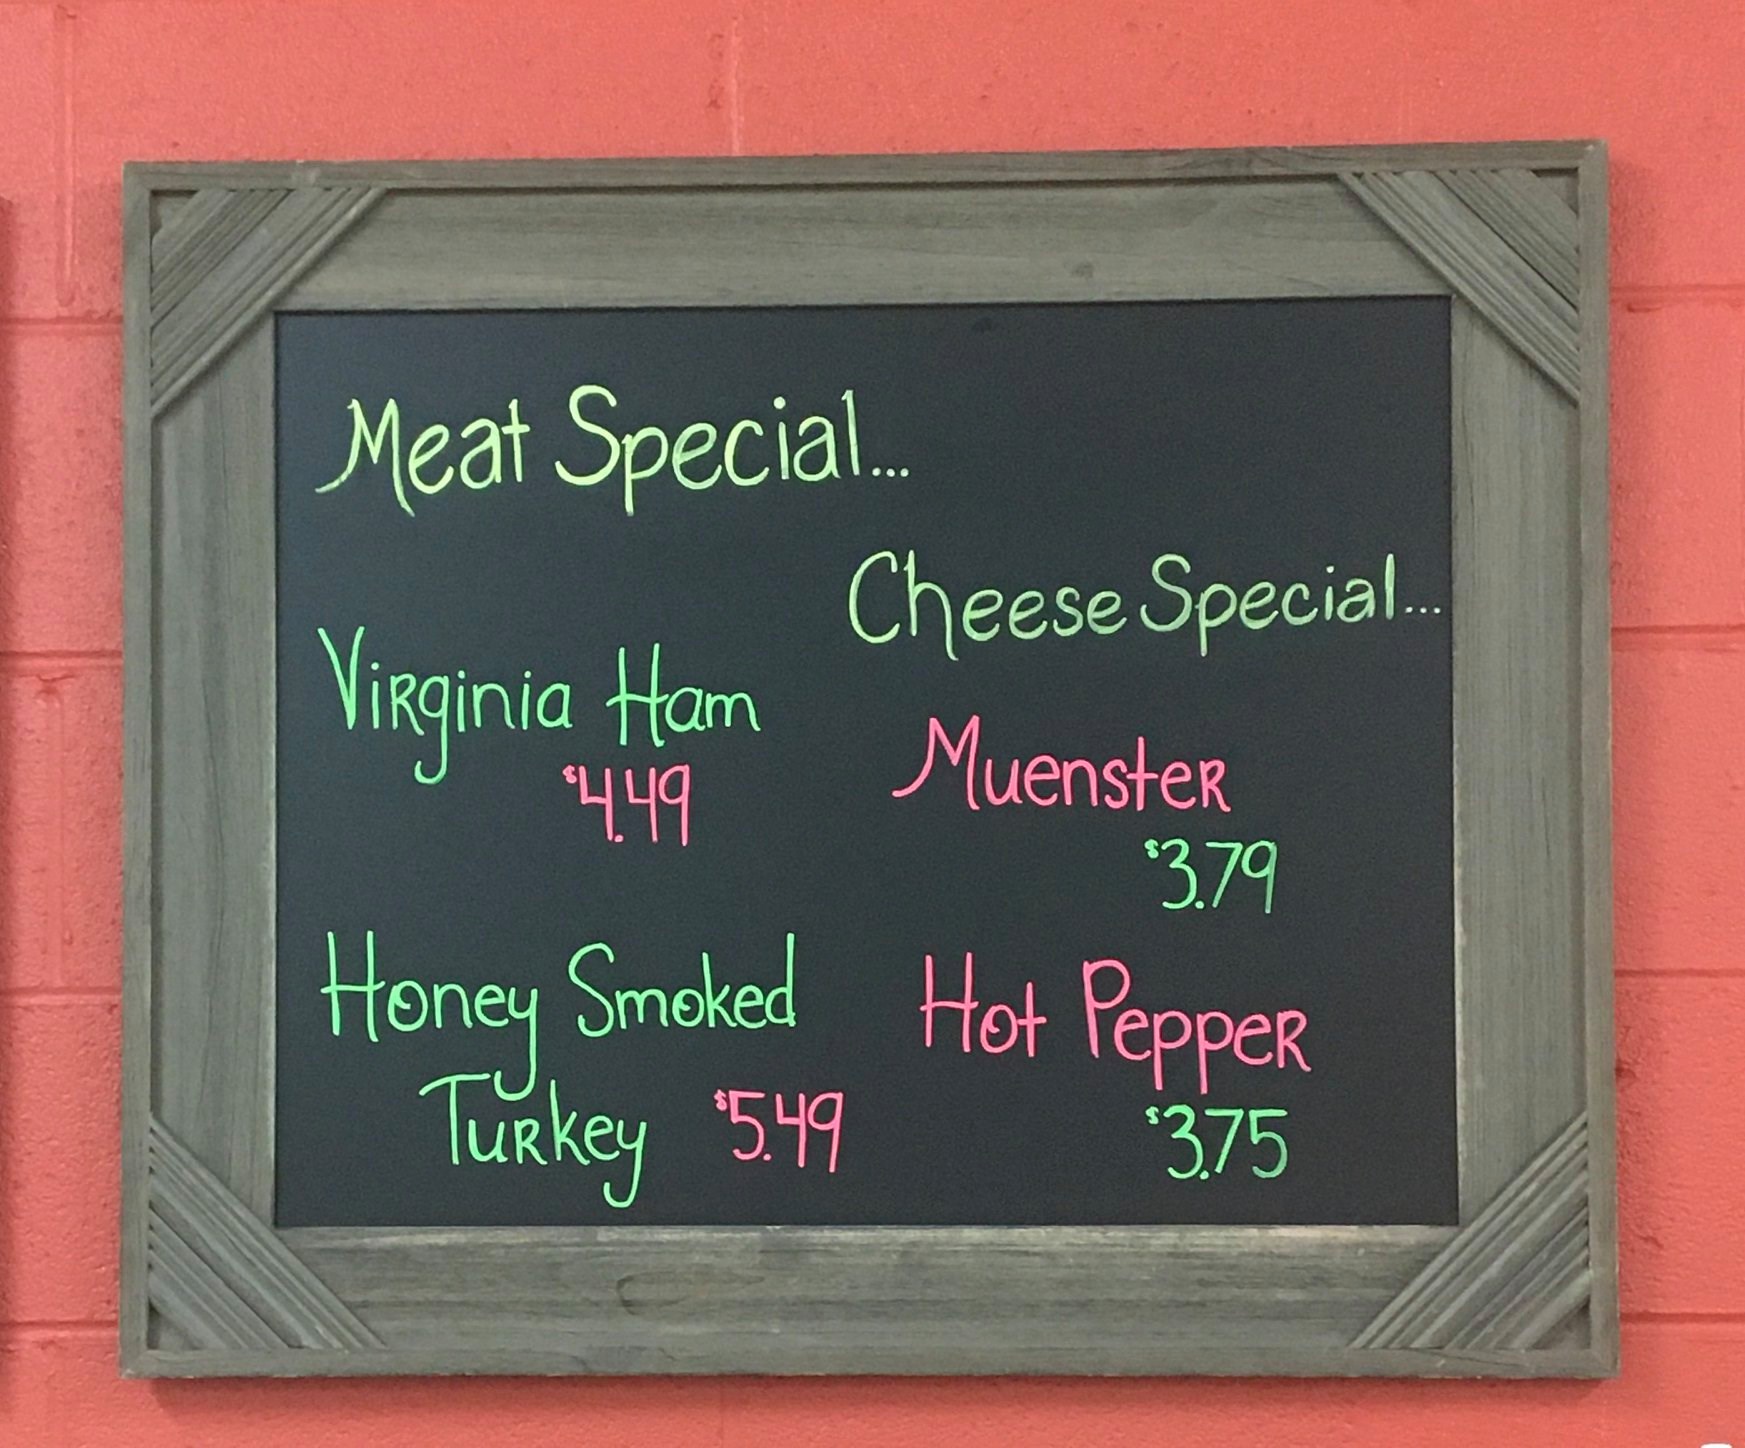 Meat Special...
Virginia Ham
$4.49
Honey Smoked
Turkey $5.49
Cheese Special...
Muenster
$3.79
Hot Pepper
$3.75